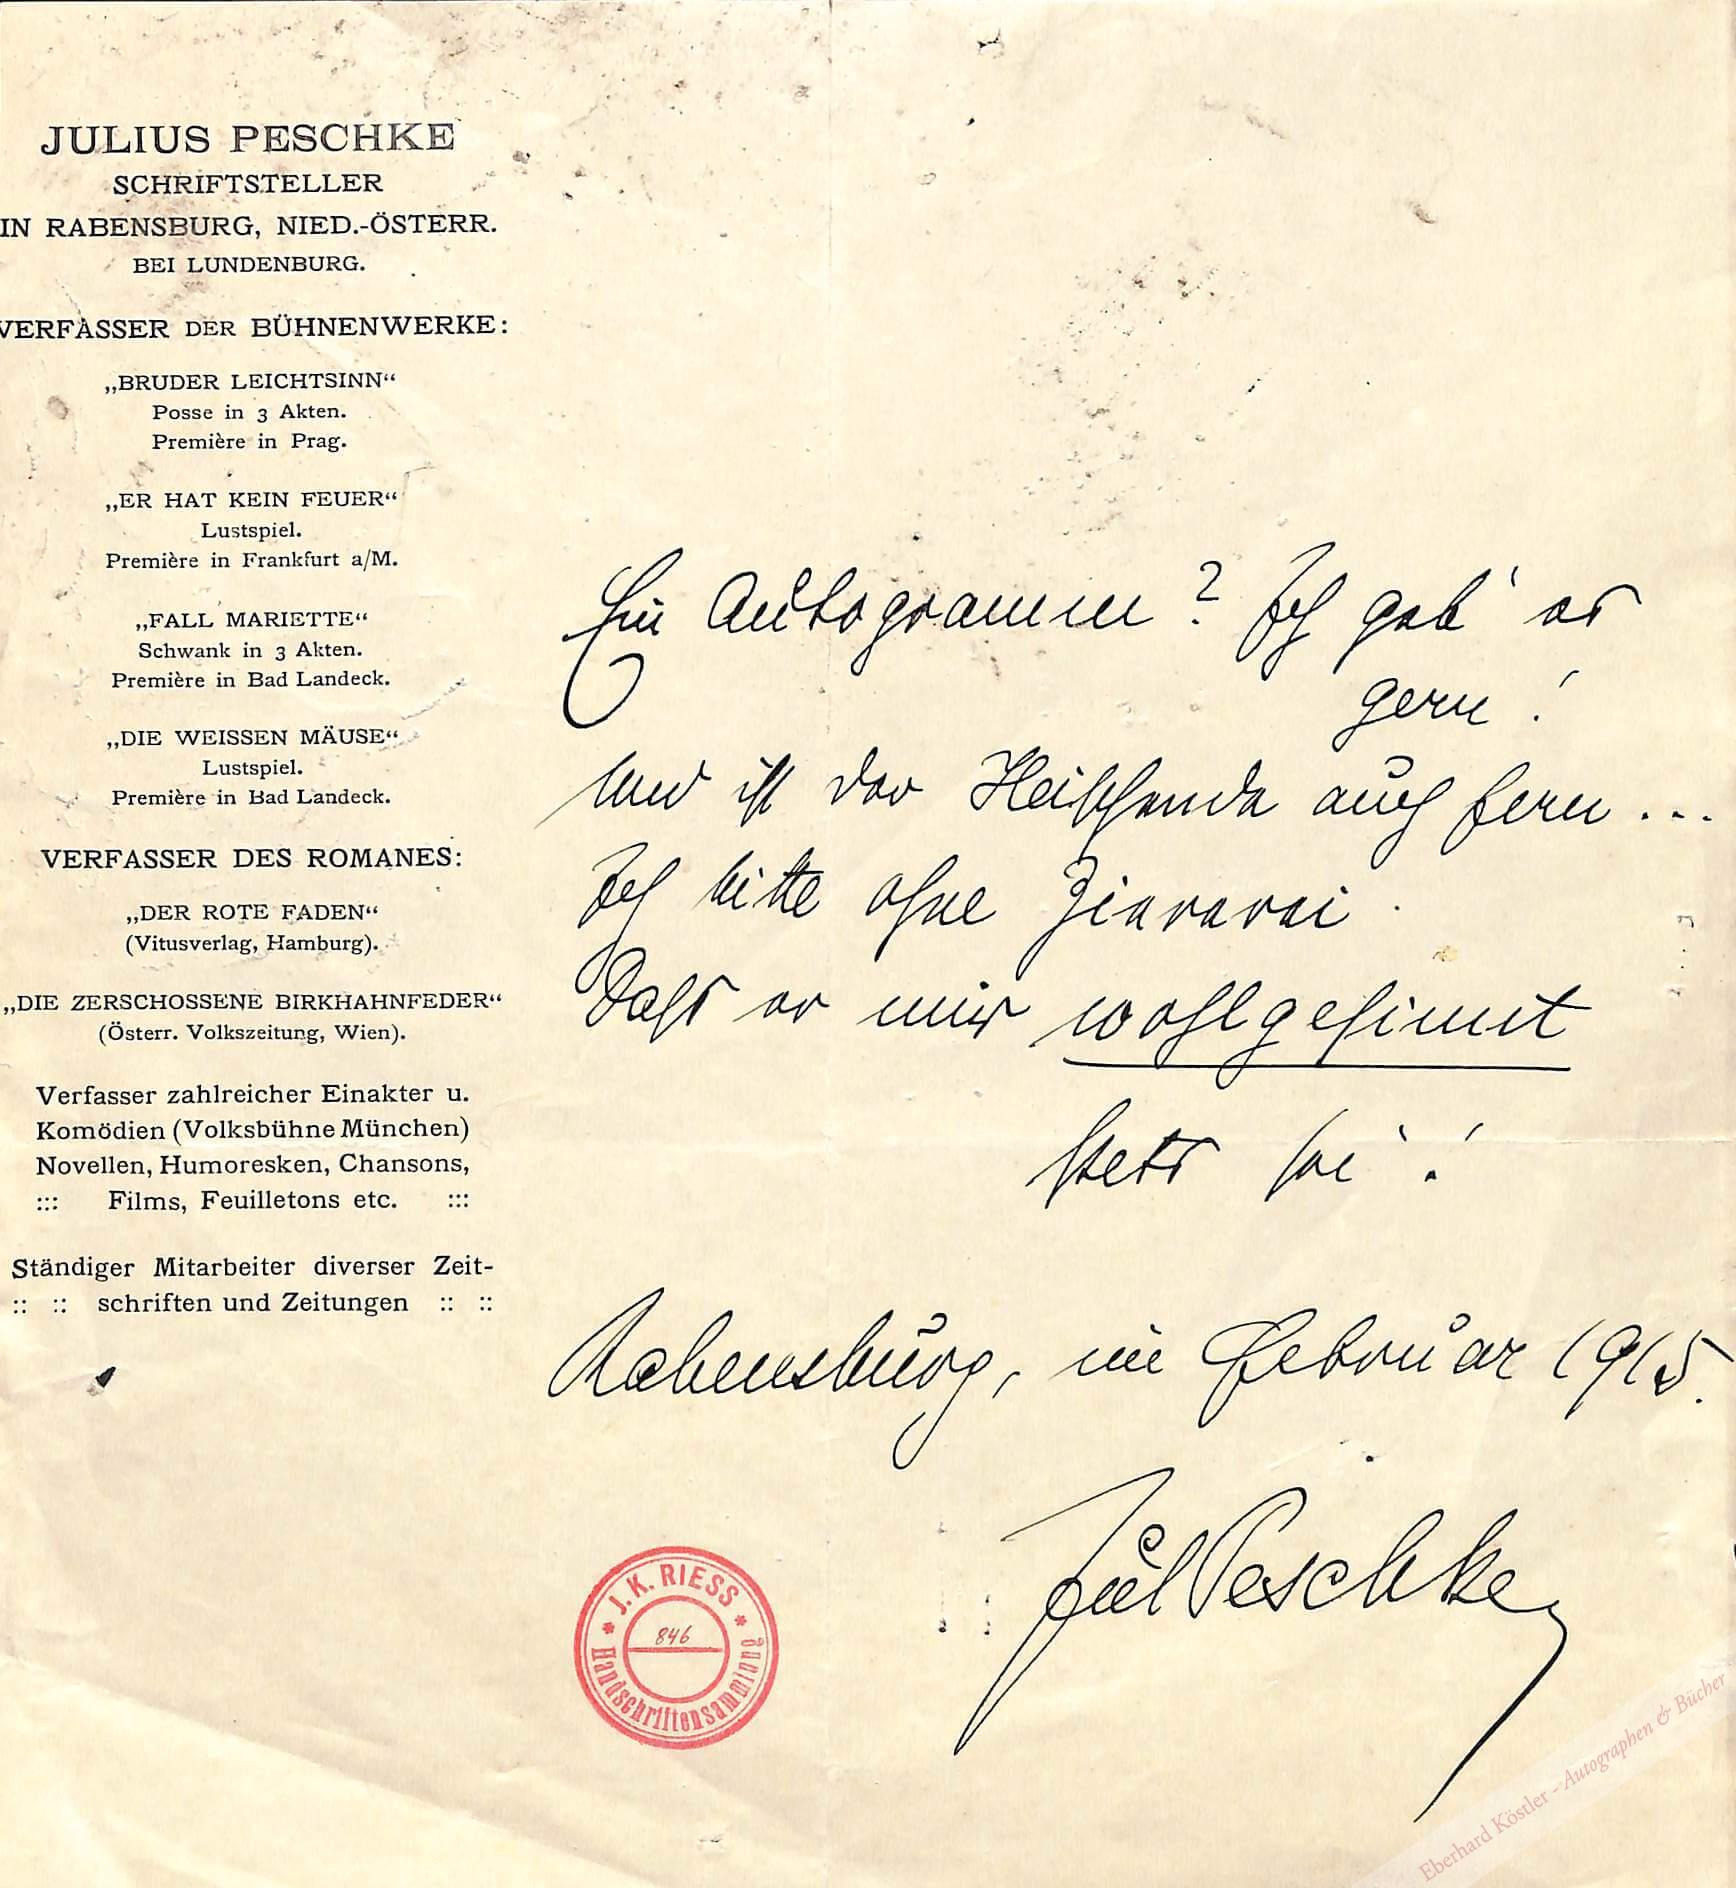 JULIUS PESCHKE
SCHRIFTSTELLER
IN RABENSBURG, NIED.-ÖSTERR.
BEI LUNDENBURG.
VERFASSER DER BÜHNENWERKE:
„BRUDER LEICHTSINN“
Posse in 3 Akten.
Première in Prag.
„ER HAT KEIN FEUER“
Lustspiel.
Première in Frankfurt a/M.
„FALL MARIETTE“
Schwank in 3 Akten.
Première in Bad Landeck.
„DIE WEISSEN MÄUSE“
Lustspiel.
Première in Bad Landeck.
VERFASSER DES ROMANES:
„DER ROTE FADEN“
(Vitusverlag, Hamburg).
„DIE ZERSCHOSSENE BIRKHAHNFEDER“
(Österr. Volkszeitung, Wien).
Verfasser zahlreicher Einakter u.
Komödien (Volksbühne München)
Novellen, Humoresken, Chansons,
::: Films, Feuilletons etc. :::
Ständiger Mitarbeiter diverser Zeit-
:: :: schriften und Zeitungen :: ::
Ein Autogramm? Ich geb' es
gern!
Und ist der Heischende auch fern...
Ich bitte ohne Ziererei
Dass er mir wohlgesinnt
stets sei!
Rabensburg, im Februar 1915.
Jul Peschke
J. K. RIESS
846
Handschriftensammlung
Eberhard Köstler - Autographen & Bücher